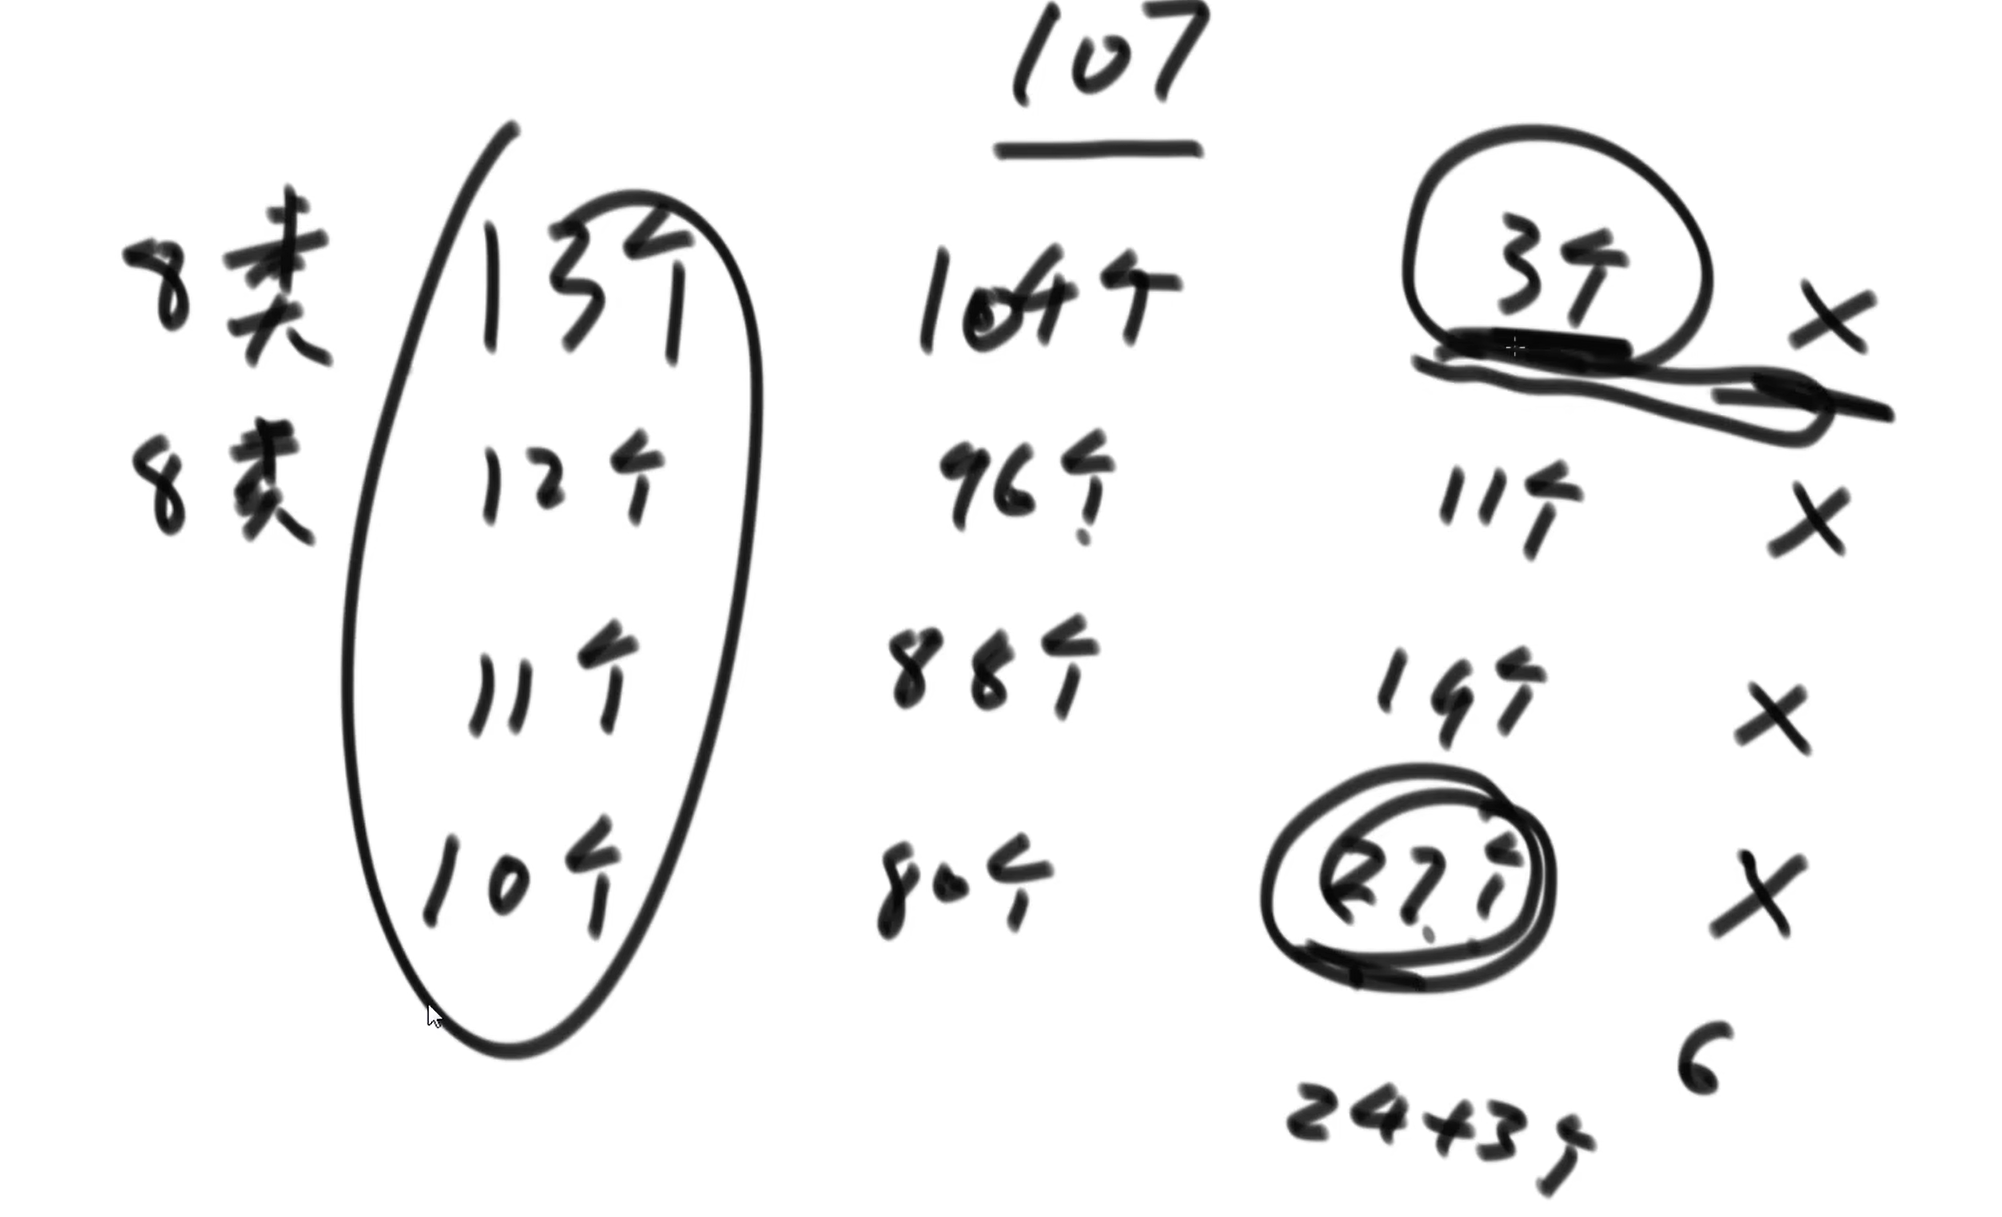 107
8类 13个 104个 3个 ×
8类 12个 96个 11个 ×
11个 88个 19个 ×
10个 80个 27个 ×
6
24+3个